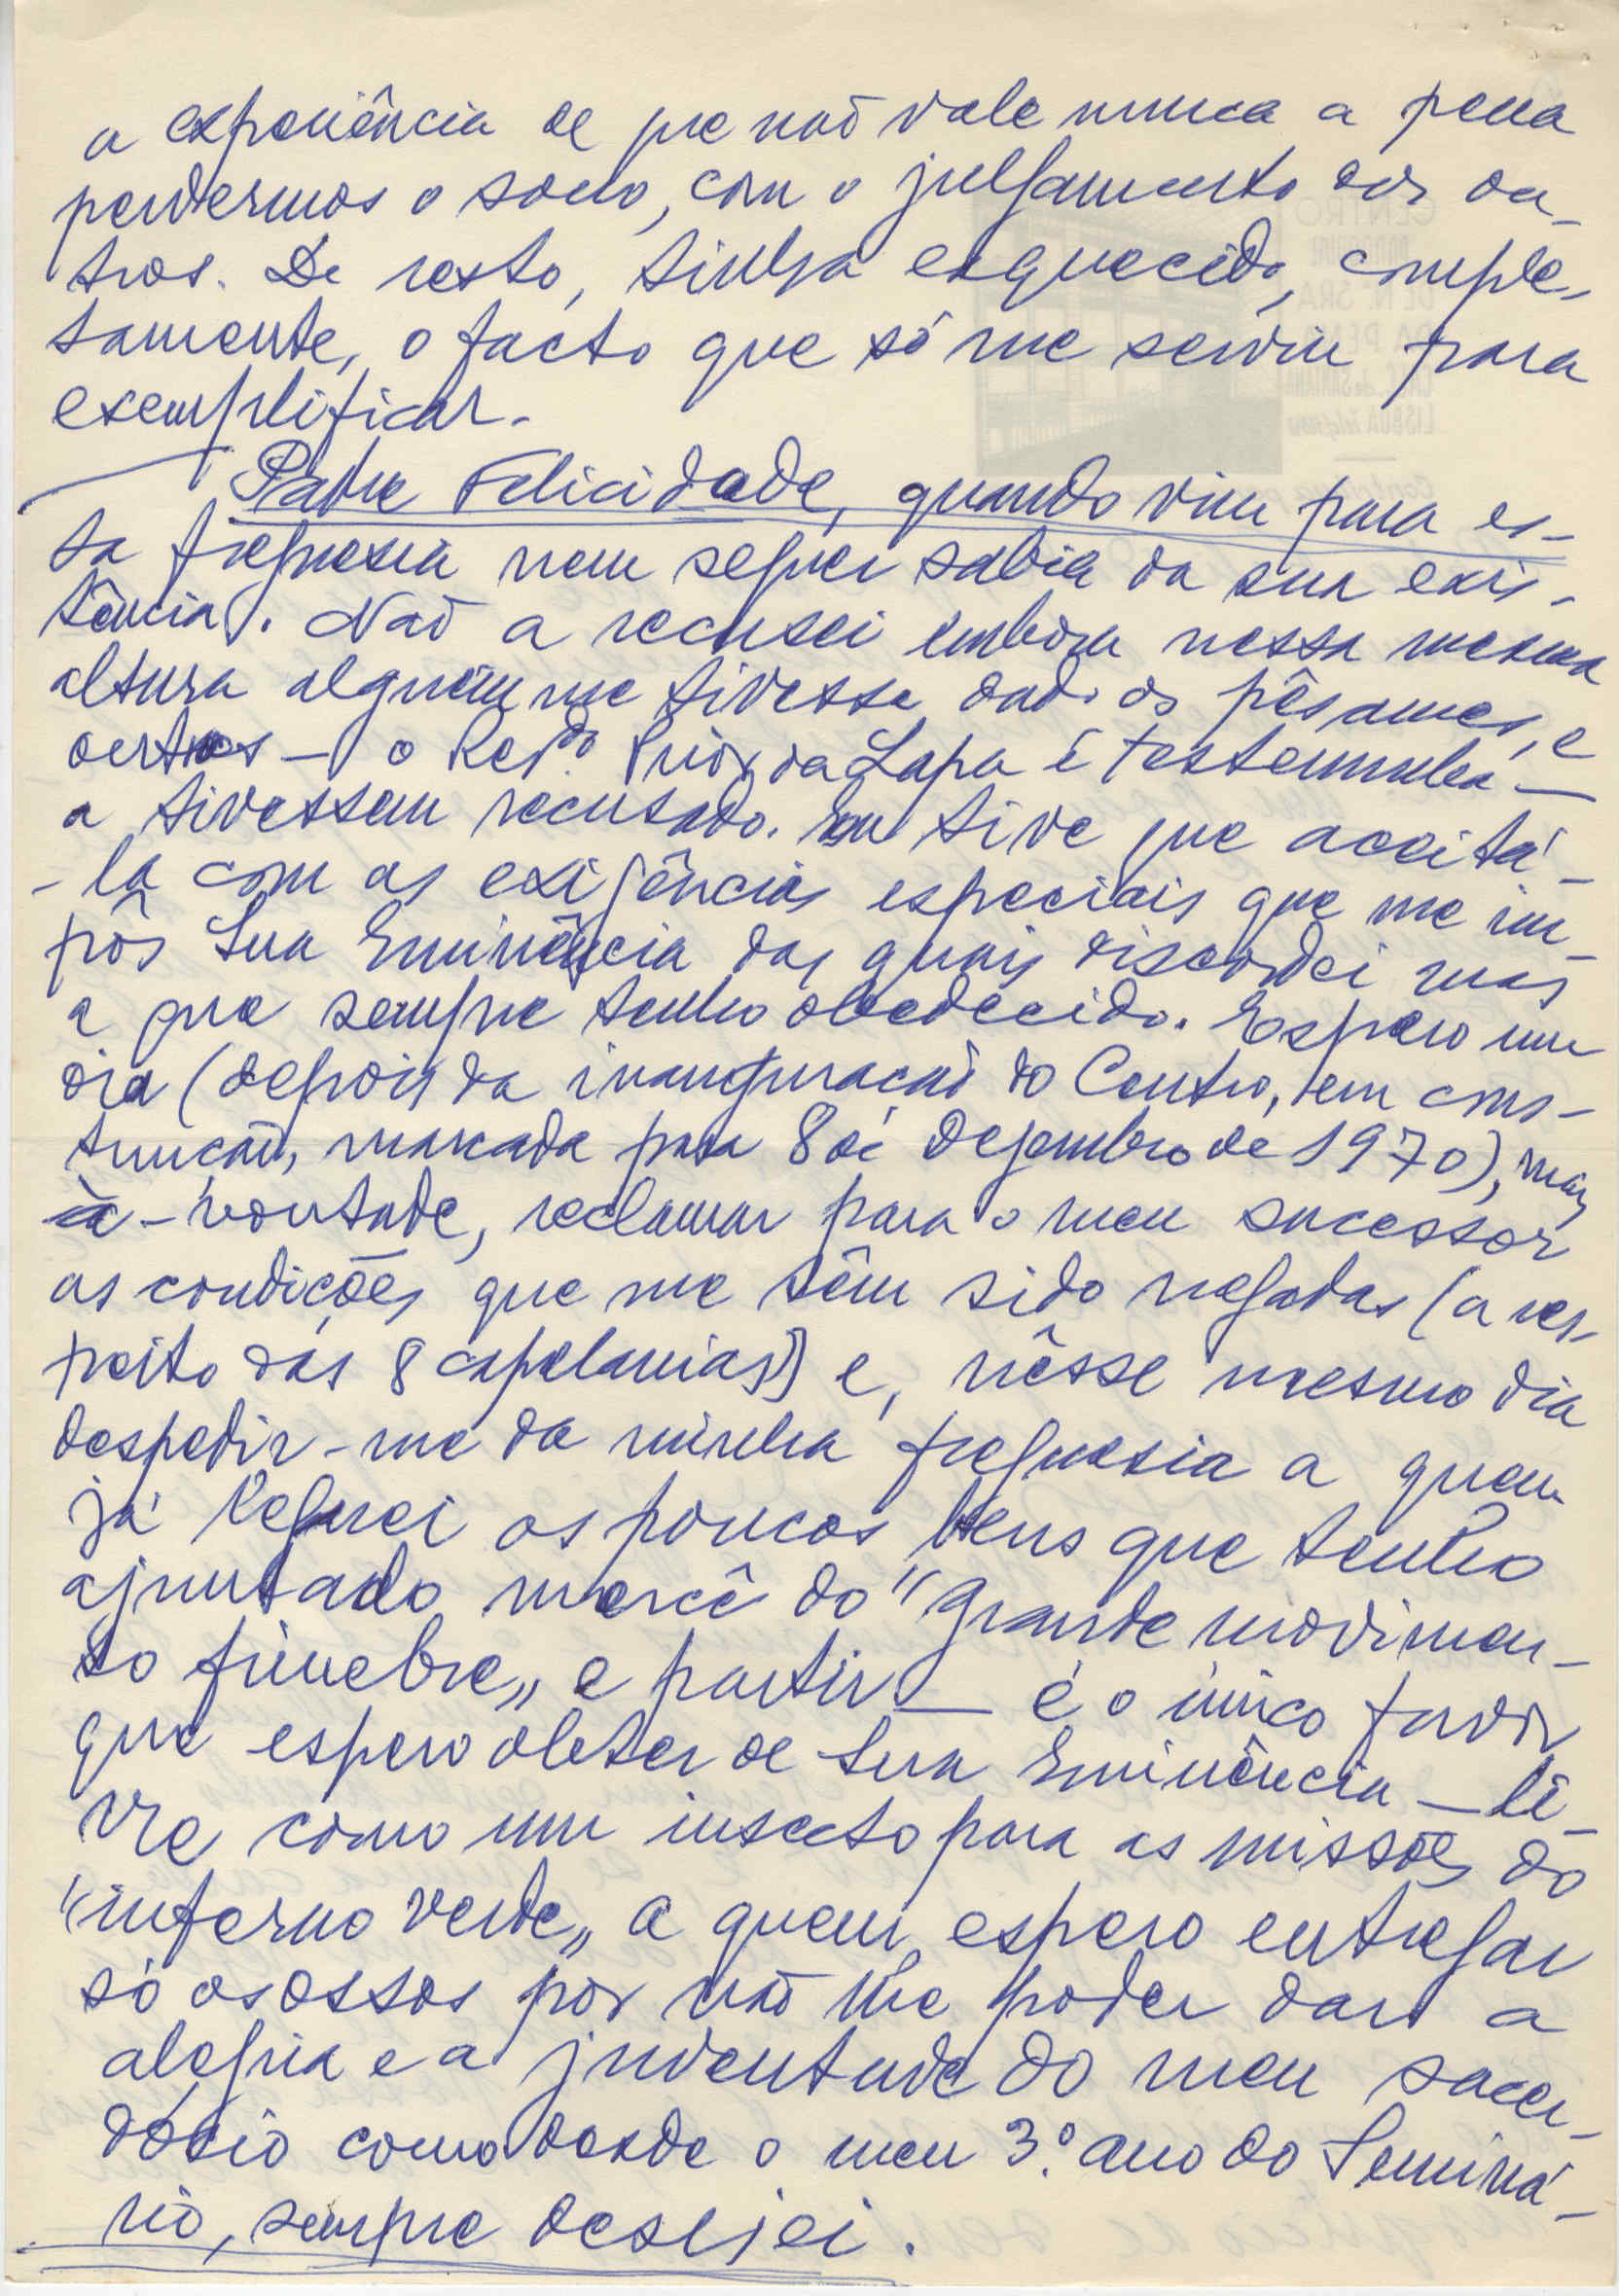 a experiência de que não vale nunca a pena
perdermos o sono, com o julgamento dos ou-
tros. De resto, tinha esquecido, comple-
tamente, o facto que só me serviu para
exemplificar.
Padre Felicidade, quando vim para es-
ta freguesia nem sequer sabia da sua exis-
tência. Não a recusei embora nessa mesma
altura alguém me tivesse dado os pêsames, e
outros — o Rev.do Prior da Lapa é testemunha —
a tivessem recusado. Eu tive que aceitá-
-la com as exigências especiais que me im-
pôs Sua Eminência das quais discordei mas
a que sempre tenho obedecido. Espero um
dia (depois da inauguração do Centro, em cons-
trução, marcada para 8 de Dezembro de 1970), mais
à-vontade, reclamar para o meu sucessor
as condições que me têm sido negadas (a res-
peito das 8 capelanias) e, nêsse mesmo dia
despedir-me da minha freguesia a quem
já leguei os poucos bens que tenho
ajuntado mercê do "grande movimen-
to fúnebre" e partir — é o único favor
que espero obter de Sua Eminência — li-
vre como um insecto para as missões do
"inferno verde" a quem espero entregar
só os ossos por não lhe poder dar a
alegria e a juventude do meu sacer-
dócio como desde o meu 3.º ano do Seminá-
rio, sempre desejei.
CENTRO
DE N. SRA
DA PENA
LISBOA